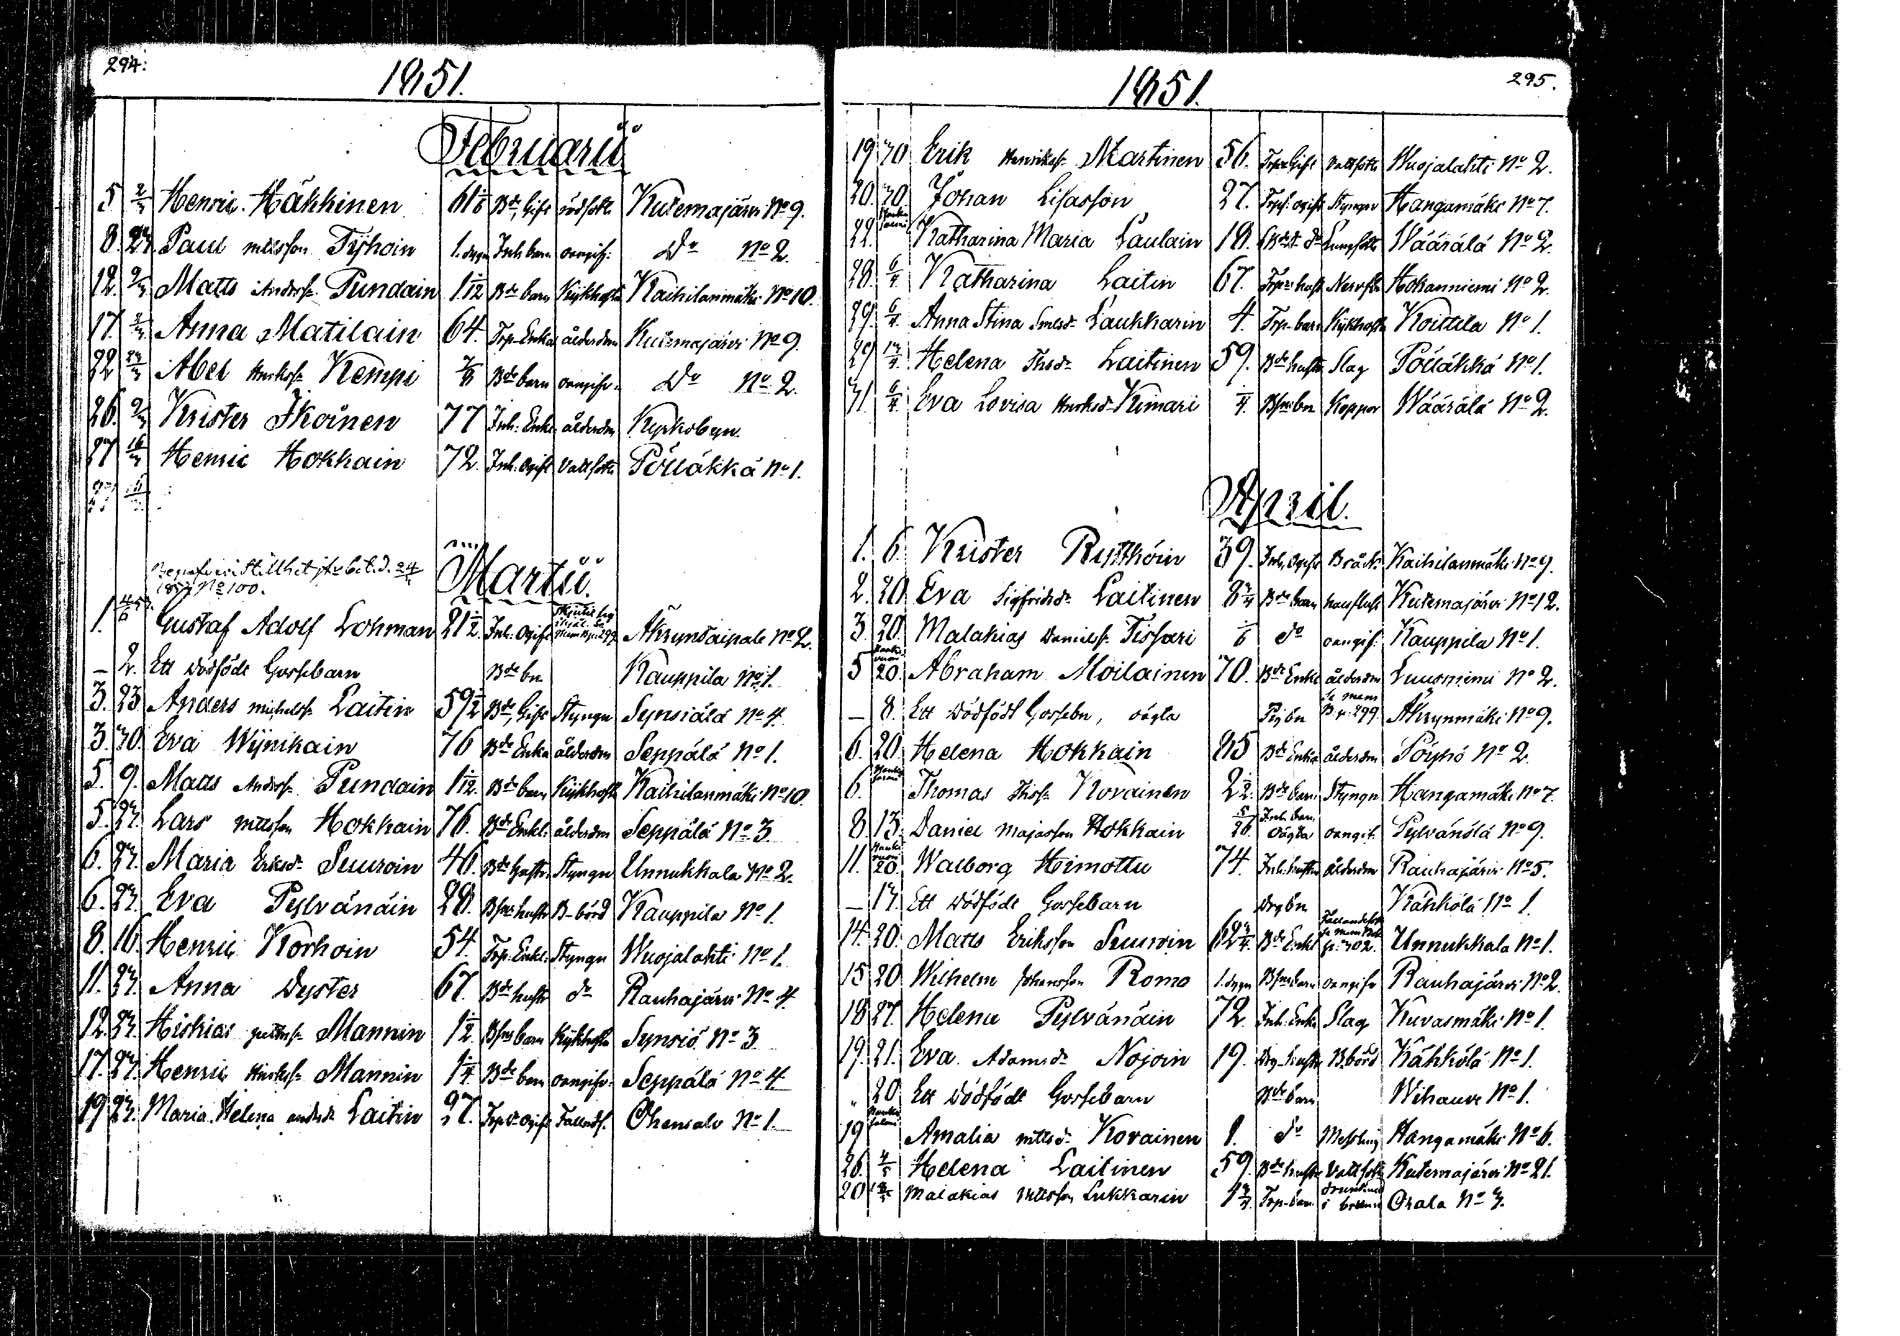 294:
1851.
Februarii
5 2/3 Henric Häkkinen 61 Bde Gift Kutemajärvi No 9.
8. 23 Paul mattsson Tyhoin 1. dygn Inh barn oangif: Do No 2
12. 2/3 Matts Anderss. Pundain 1 1/12 Bde barn Kikhosta Kaihilanmäki No 10.
17. 2/3 Anna Matilain 64. Trp Enka ålderdom Kutemajärvi No 9.
22 23/3 Abel Henrikss. Kempi Bde barn oangifv. Do No 2.
26. 2/3 Krister Ikoinen 77 Inh: Enkl: ålderdm Kyrkobyn.
27 16/3 Henric Hokkain 72. Inh. Ogift Vattsot Pölläkkä No 1.
Martii.
No 100.
1. Gustaf Adolf Lohman 21 1/2 Inh. Ogift Äkrynsaipale No 2.
— 2. Ett dödfödt Gossebarn Bde bn Kauppila No 1.
3. 23 Anders michelss. Laitin 59 1/2 Bde, Gift Styngn Synsiälä No 4.
3. 30. Eva Wynikain 76 Bde Enka ålderdm Seppälä No 1.
5. 9. Maas Anderss. Pundain 1 1/12. Bde barn Kikhosta Kaihilanmäki No 10.
5. 23. Lars mattsson Hokkain 76. Bde Enkl: ålderdm Seppälä No 3
6. 23. Maria Eriksd. Suuroin 46. Bde hustr. Styngn Unnukkala No 2.
6. 23. Eva Pylvänäin 28. Bfns hustr B-börd Kauppila No 1.
8. 16. Henric Korhoin 54. Trp. Enkl: Styngn Wuojalahti No 1.
11. 23. Anna Dyster 67. Bde hustr do Rauhajärvi No 4.
12. 23. Hiskias Mannin 1 1/2 Bfns barn Kikhosta Synsiö No 3
17. 23. Henric Henrikss. Mannin 1 1/4 Bde barn oangifv. Seppälä No 4
19 23. Maria Helena andersd. Laitin 27. Trp D. Ogift Fallandes. Ohensalo No 1.
295.
1851.
19 30 Erik Henrikss. Martinen 56. Trpre Gift Vattsot Wuojalahti No 2.
20. 30. Johan Lisasson 27. Trpd. ogift Styngn Hangamäki No 7.
22. Katharina Maria Laulain 18. do Lungsot Wäärälä No 2.
28. 6/4 Katharina Laitin 67. Trp. hustr Hokanniemi No 2.
29. 6/4 Anna Stina Laukkarin 4. Trp. barn Kikhosta Koittila No 1.
29 13/4 Helena Thsd. Laitinen 59. Bde hustr. Slag Pölläkkä No 1.
31. 6/4 Eva Lovisa Henriksd. Kimari 1/4. Bfns bn Koppor Wäärälä No 2.
April.
1. 6. Krister Rytthöin 39. Inh, Ogift Bråck Kaihilanmäki No 9.
2. 20. Eva Sigfridsd. Laitinen 8 3/4 Bde barn Kutemajärvi No 12.
3. 20. Malakias Daniels. Tissari 1/6 do oangif: Kauppila No 1.
5 20. Abraham Moilainen 70. Bde Enkl. ålderdm Luusniemi No 2.
— 8. Ett Dödfödt Gossebn, oägta Pig bn Äkrynmäki No 9.
6. 20. Helena Hokkain 85 Bde Enka ålderdm Pöyhö No 2.
6. Thomas Thoss. Kovainen 2 1/2. Bde barn Styngn Hangamäki No 7.
8. 13. Daniel Majasson Hokkain 5/26. Inh. barn, oägta oangif. Pylvänölä No 9.
11. 20. Walborg Heimottu 74. Inh. hustr ålderdm Rauhajärvi No 5.
— 13. Ett dödfödt Gossebarn Drg bn Kähkölä No 1.
14. 20. Matts Eriksson Suuroin 62 3/4. Bde Enkl p. 302. Unnukkala No 1.
15 20 Wilhelm Johansson Romo 1. dygn Bfns barn oangifv Rauhajärvi No 2.
18 27. Helena Pylvänäin 72. Inh. Enka Slag Kuvasmäki No 1.
19. 21. Eva Adamsd. Nojoin 19. Drg. hustr B.börd Kähkölä No 1.
„ 20 Ett dödfödt Gossebarn Bde barn Wihavu No 1.
19 Amalia mattsd. Kovainen 1. do Messling Hangamäki No 6.
26. 4/5 Helena Laitinen 59. Bde hustr Vattsot Kutemajärvi No 21.
20 Malakias Mattsson Lukkarin 1 3/4. Trp. barn drunknad i brunn Orala No 3.